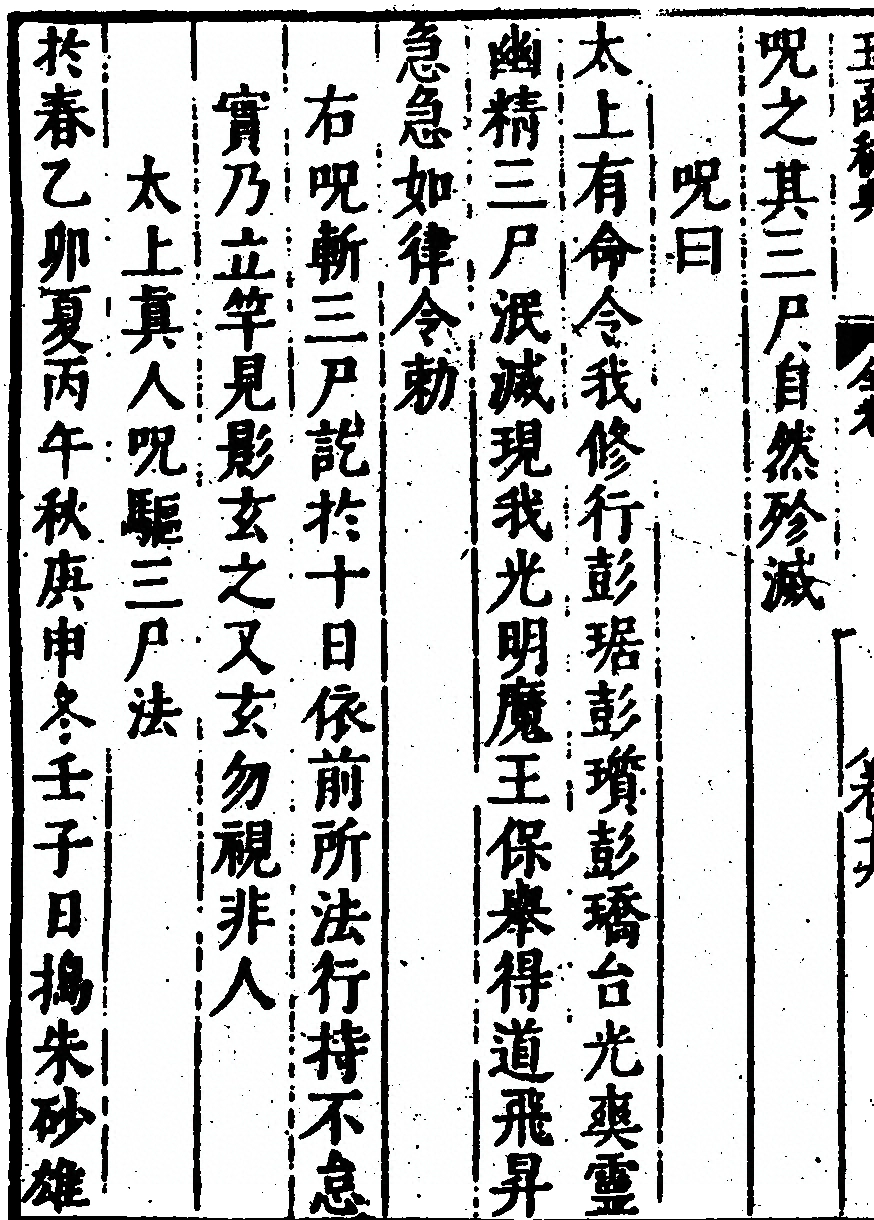 呪之其三尸自然殄滅
呪曰
太上有命令我修行彭琚彭瓚彭璚台光奭靈
幽精三尸泯滅現我光明魔王保舉得道飛昇
急急如律令勅
右呪斬三尸訖於十日依前所法行持不怠
實乃立竿見影玄之又玄勿視非人
太上眞人呪驅三尸法
於春乙卯夏丙午秋庚申冬壬子日搗朱砂雄